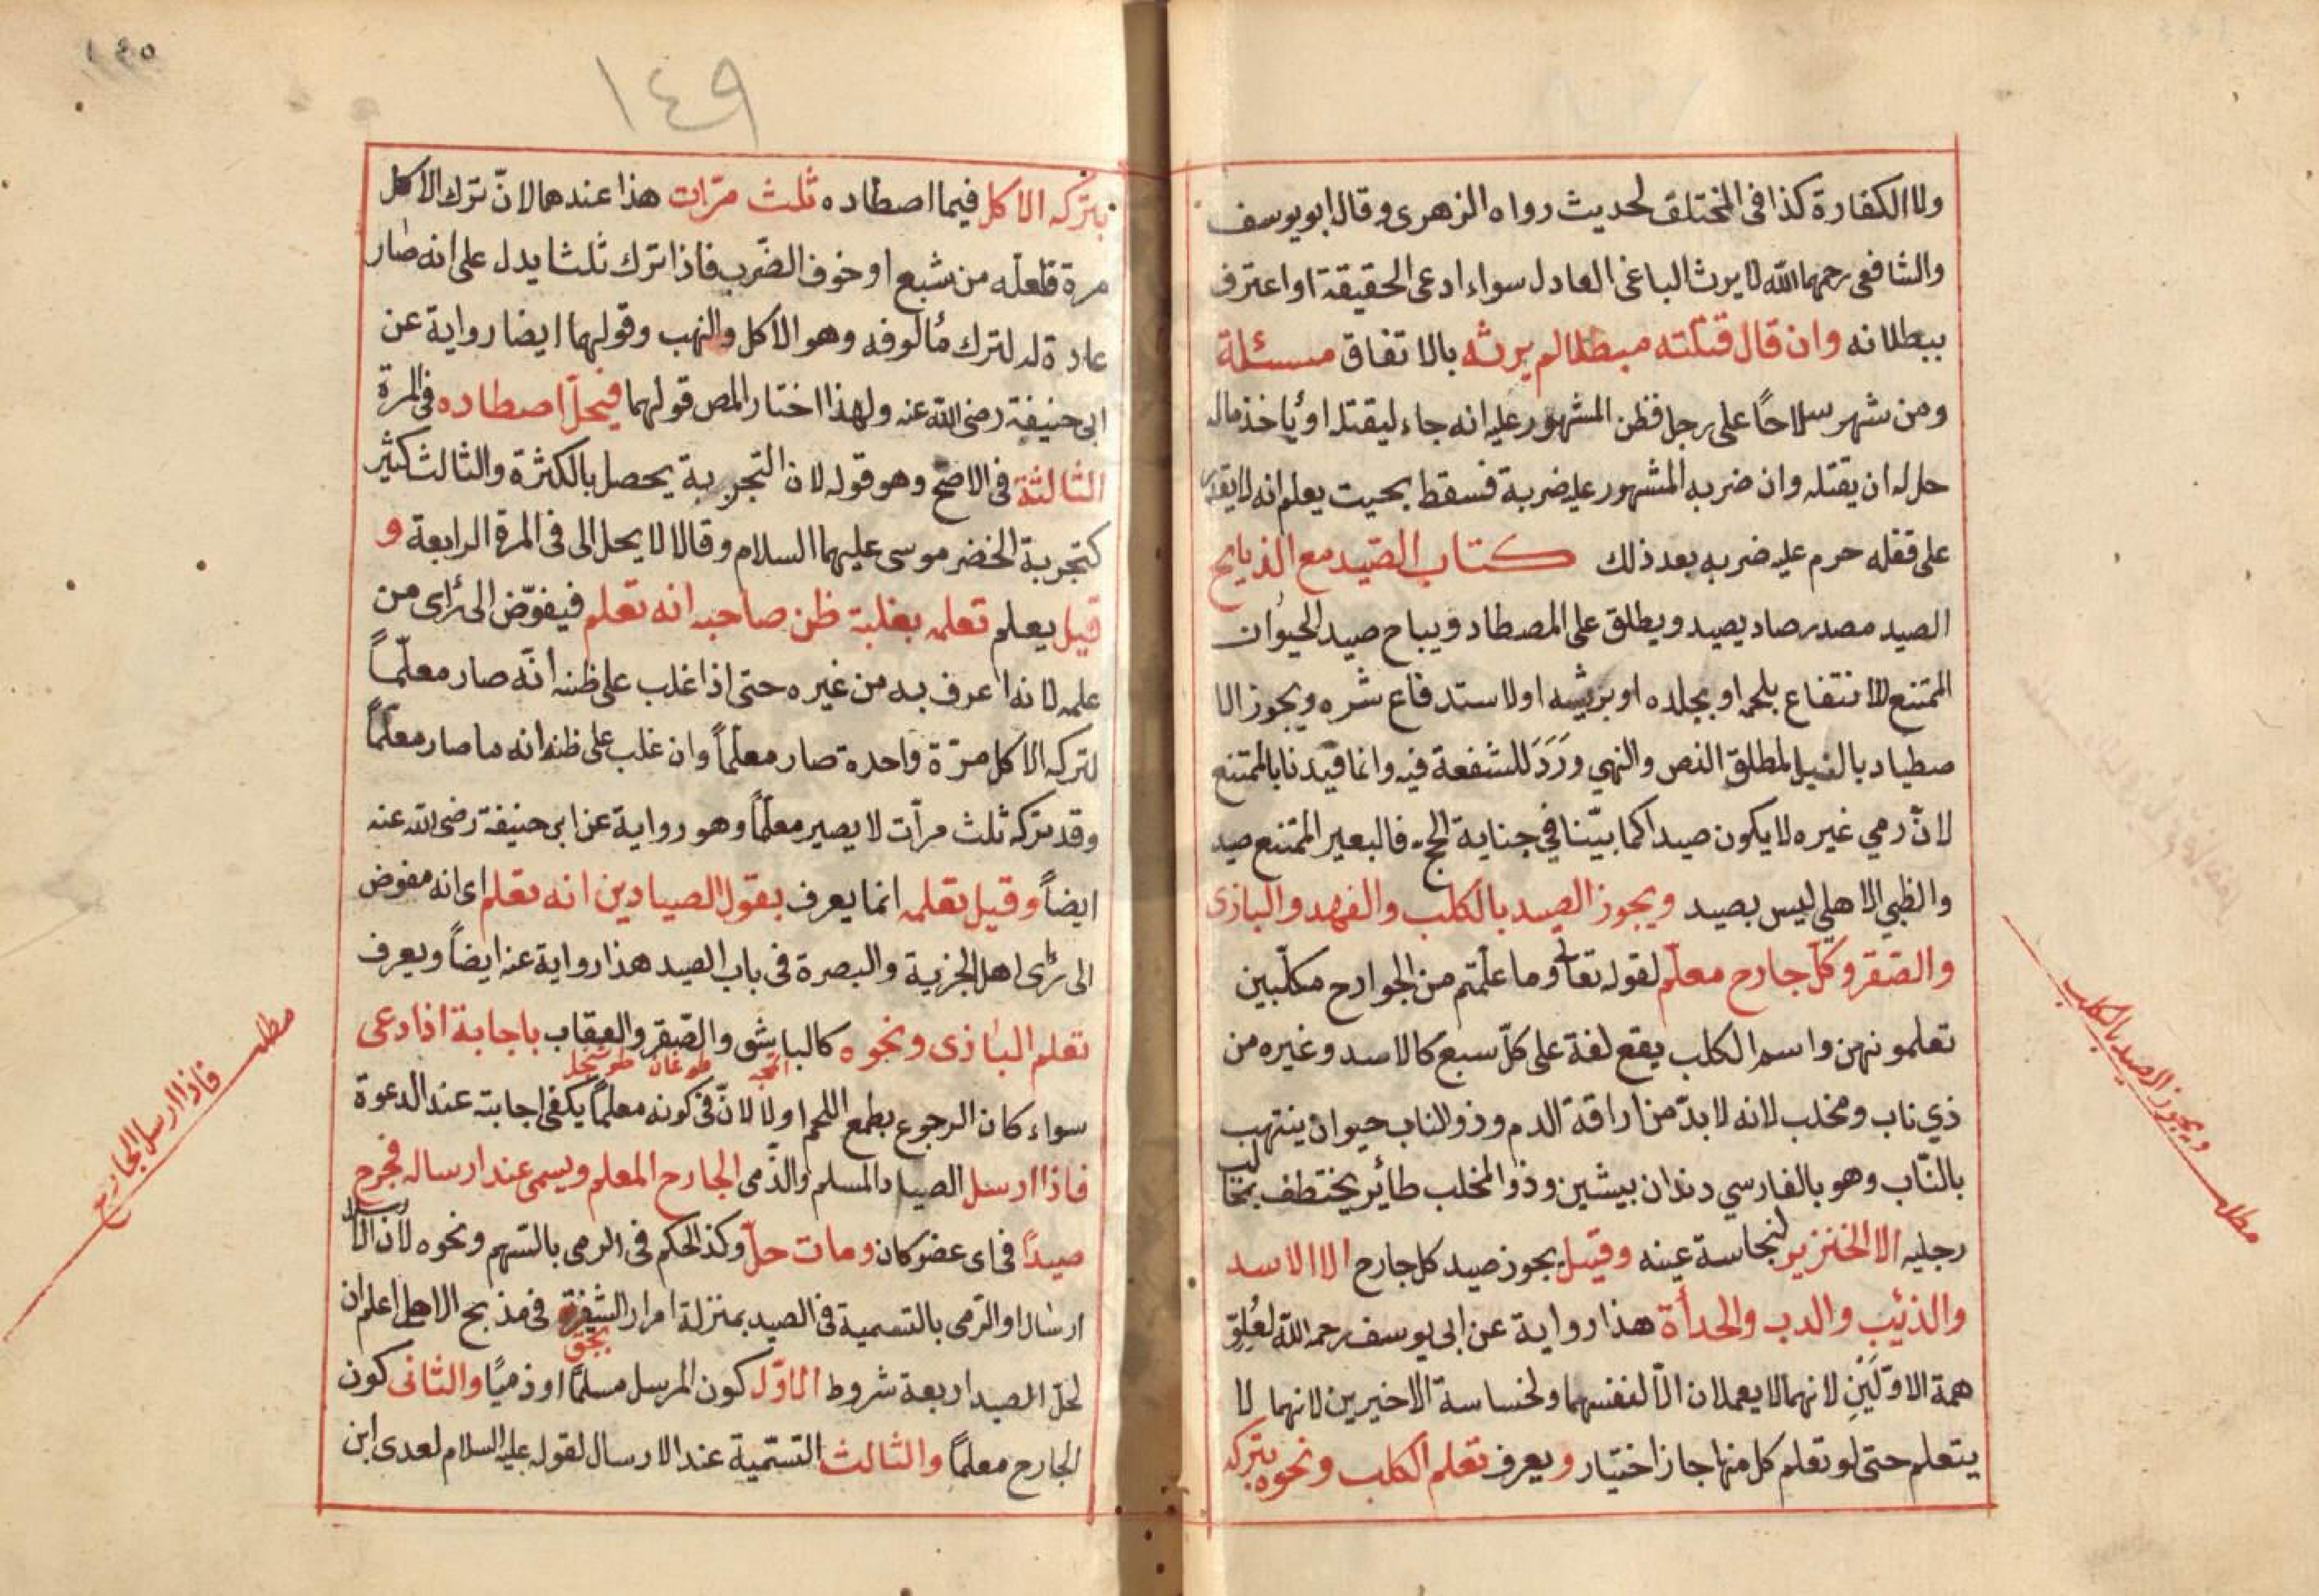 ولا الكفارة كذا في المختلق لحديث رواه الزهرى وقال ابو يوسف
والشافعى رحمهما الله لا يرث الباغى العادل سواء ادعى الحقيقة او اعترف
ببطلانه وان قال قتلته مبطلا لم يرثه بالاتفاق مسئلة
ومن شهر سلاحًا على رجل فظن المشهور عليه انه جاء ليقتله او يأخذ ماله
حل له ان يقتله وان ضربه المشهور عليه ضربة فسقط بحيث يعلم انه لا يقدر
على قفله حرم عليه ضربه بعد ذلك كتاب الصيد مع الذبايح
الصيد مصدر صاد يصيد ويطلق على المصطاد ويباح صيد الحيوان
الممتنع للانتفاع بلحمه او بجلده او بريشه او لاستدفاع شره ويجوز الا
صطياد بالليل لمطلق النص والنهي وَرَدَ للشفعة فيه وانما قيدنا بالممتنع
لانّ رمي غيره لا يكون صيدا كما بيّنا في جناية الحج فالبعير الممتنع صيد
والظبي الاهلي ليس بصيد ويجوز الصيد بالكلب والفهد والبازى
والصّقر وكلّ جارح معلّم لقوله تعالى وما علّمتم من الجوارح مكلّبين
تعلمونهن واسم الكلب يقع لغة على كلّ سبع كالاسد وغيره من
ذي ناب ومخلب لانه لا بدّ من اراقة الدم وذو الناب حيوان ينتهب
بالنّاب وهو بالفارسي دندان بيشين وذو المخلب طائر يختطف بمخالب
رجليه الا الخنزير لنجاسة عينه وقيل يجوز صيد كل جارح الا الاسد
والذئب والدب والحدأة هذا رواية عن ابى يوسف رحمه الله لعُلوّ
همة الاوّلَيْنِ لانهما لا يعملان الّا لنفسهما ولخساسة الاخيرين لانهما لا
يتعلم حتى لو تعلم كل منها جاز اختيار ويعرف تعلم الكلب ونحوه بتركه
مطلب ويجوز الصيد بالكلب
١٤٥
١٤٩
بتركه الاكل فيما اصطاده ثلث مرّات هذا عندهما لانّ ترك الاكل
مرة فلعلّه من شبع او خوف الضّرب فاذا ترك ثلثا يدل على انه صار
عادة له لترك مألوفه وهو الاكل والنهب وقولهما ايضا رواية عن
ابى حنيفة رضى الله عنه ولهذا اختار المص قولهما فيحلّ اصطاده في المرة
الثالثة في الاصحّ وهو قوله لان التجربة يحصل بالكثرة والثالث كثير
كتجربة الخضر موسى عليهما السلام وقالا لا يحل الى في المرة الرابعة و
قيل يعلم تعلمه بغلبة ظن صاحبه انه تعلم فيفوّض الى رأى من
علمه لانه اعرف به من غيره حتى اذا غلب على ظنه أنّه صار معلّمًا
لتركه الاكل مرّة واحدة صار معلّمًا وان غلب على ظنه انه ما صار معلّمًا
وقد تركه ثلث مرآت لا يصير معلّمًا وهو رواية عن ابى حنيفة رضى الله عنه
ايضًا وقيل تعلمه انما يعرف بقول الصيادين انه تعلم اى انه مفوض
الى رأى اهل الجزية والبصرة في باب الصيد هذا رواية عنه ايضًا ويعرف
تعلم البازى ونحوه كالباشق والصّقر والعقاب باجابة اذا دعى
سواء كان الرجوع بطمع اللحم او لا لانّ في كونه معلمًا يكفى اجابته عند الدعوة
فاذا ارسل الصياد المسلم والذّمى الجارح المعلم ويسمى عند ارساله فجرح
صيدًا في اى عضو كان ومات حلّ وكذا الحكم في الرمى بالسّهم ونحوه لانّ الارسال
ارسالا والرّمى بالتسمية في الصيد بمنزلة امرار الشفرة في مذبح الاهل اعلم ان
لحلّ الصيد اربعة شروط الاوّل كون المرسل مسلمًا او ذميًا والثانى كون
الجارح معلمًا والثالث التسمية عند الارسال لقوله عليه السلام لعدى ابن
مطلب فاذا ارسل الجارح